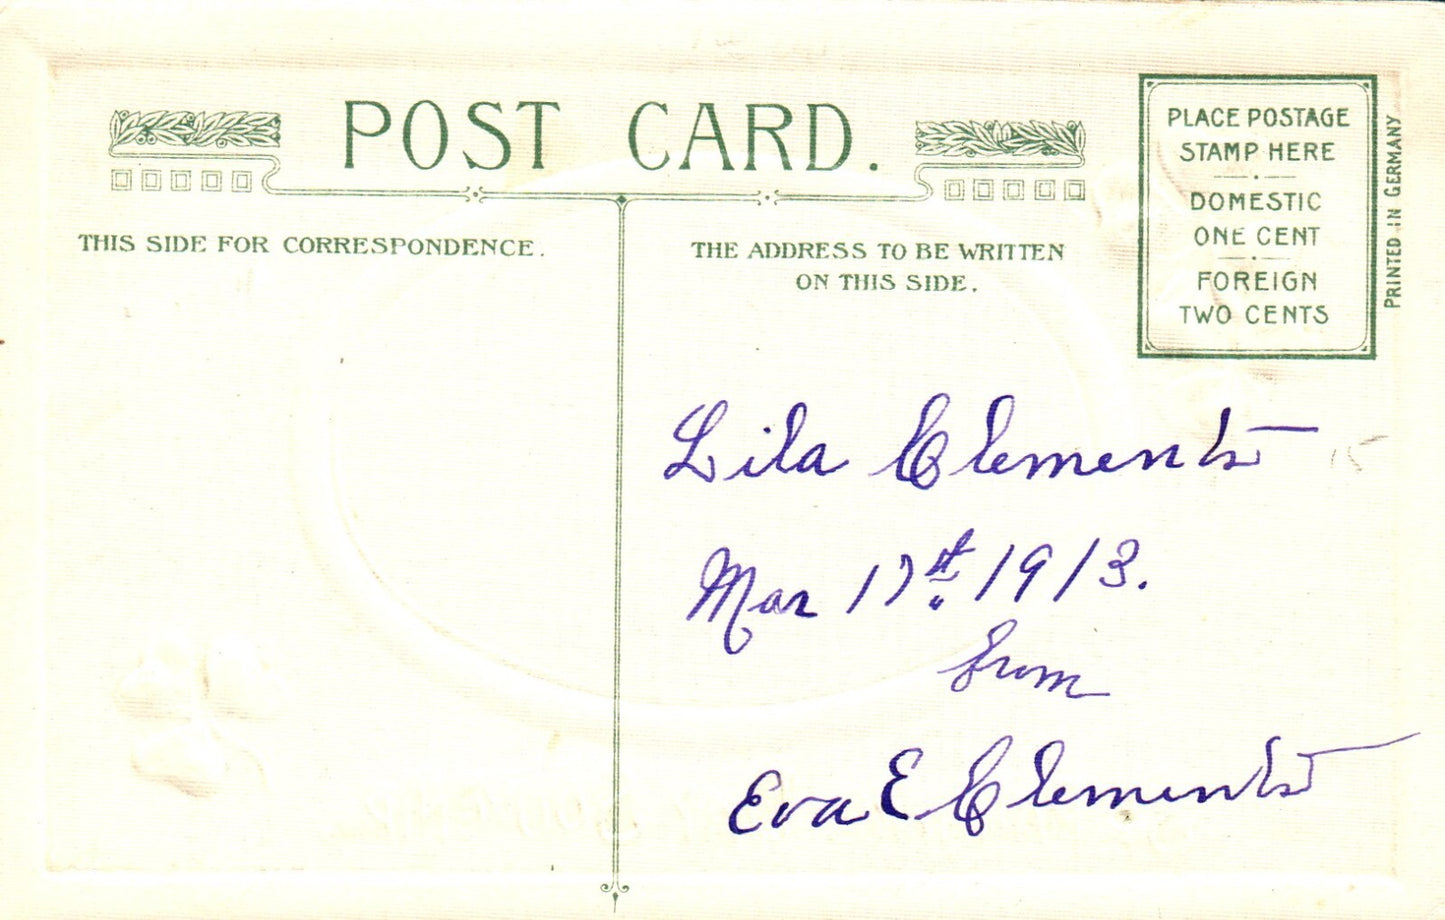 POST CARD.
THIS SIDE FOR CORRESPONDENCE.
THE ADDRESS TO BE WRITTEN
ON THIS SIDE.
PLACE POSTAGE
STAMP HERE
DOMESTIC
ONE CENT
FOREIGN
TWO CENTS
PRINTED IN GERMANY
Lila Clements
15
Mar 17st 1913.
from
Eva E Clements